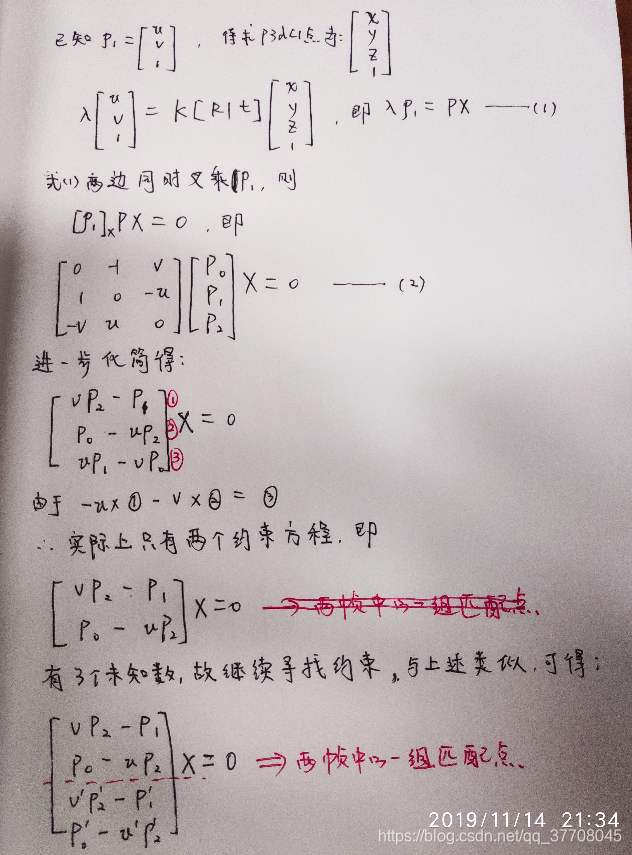 已知 P₁ = [u v 1], 待求 P3d<1点为: [x y z 1]
λ [u v 1] = K [R|t] [x y z 1], 即 λP₁ = PX ——(1)
式(1)两边同时叉乘P₁, 则
[P₁]ₓ PX = 0, 即
[0 -1 v; 1 0 -u; -v u 0] [P₀; P₁; P₂] X = 0 ——(2)
进一步化简得:
[vP₂ - P₁ ①; P₀ - uP₂ ②; uP₁ - vP₀ ③] X = 0
由于 -u×① - v×② = ③
∴ 实际上只有两个约束方程, 即
[vP₂ - P₁; P₀ - uP₂] X = 0 ⇒ 两帧中的一组匹配点.
有3个未知数, 故继续寻找约束, 与上述类似, 可得:
[vP₂ - P₁; P₀ - uP₂; v'P₂' - P₁'; P₀' - u'P₂'] X = 0 ⇒ 两帧中的一组匹配点.
2019/11/14 21:34
https://blog.csdn.net/qq_37708045